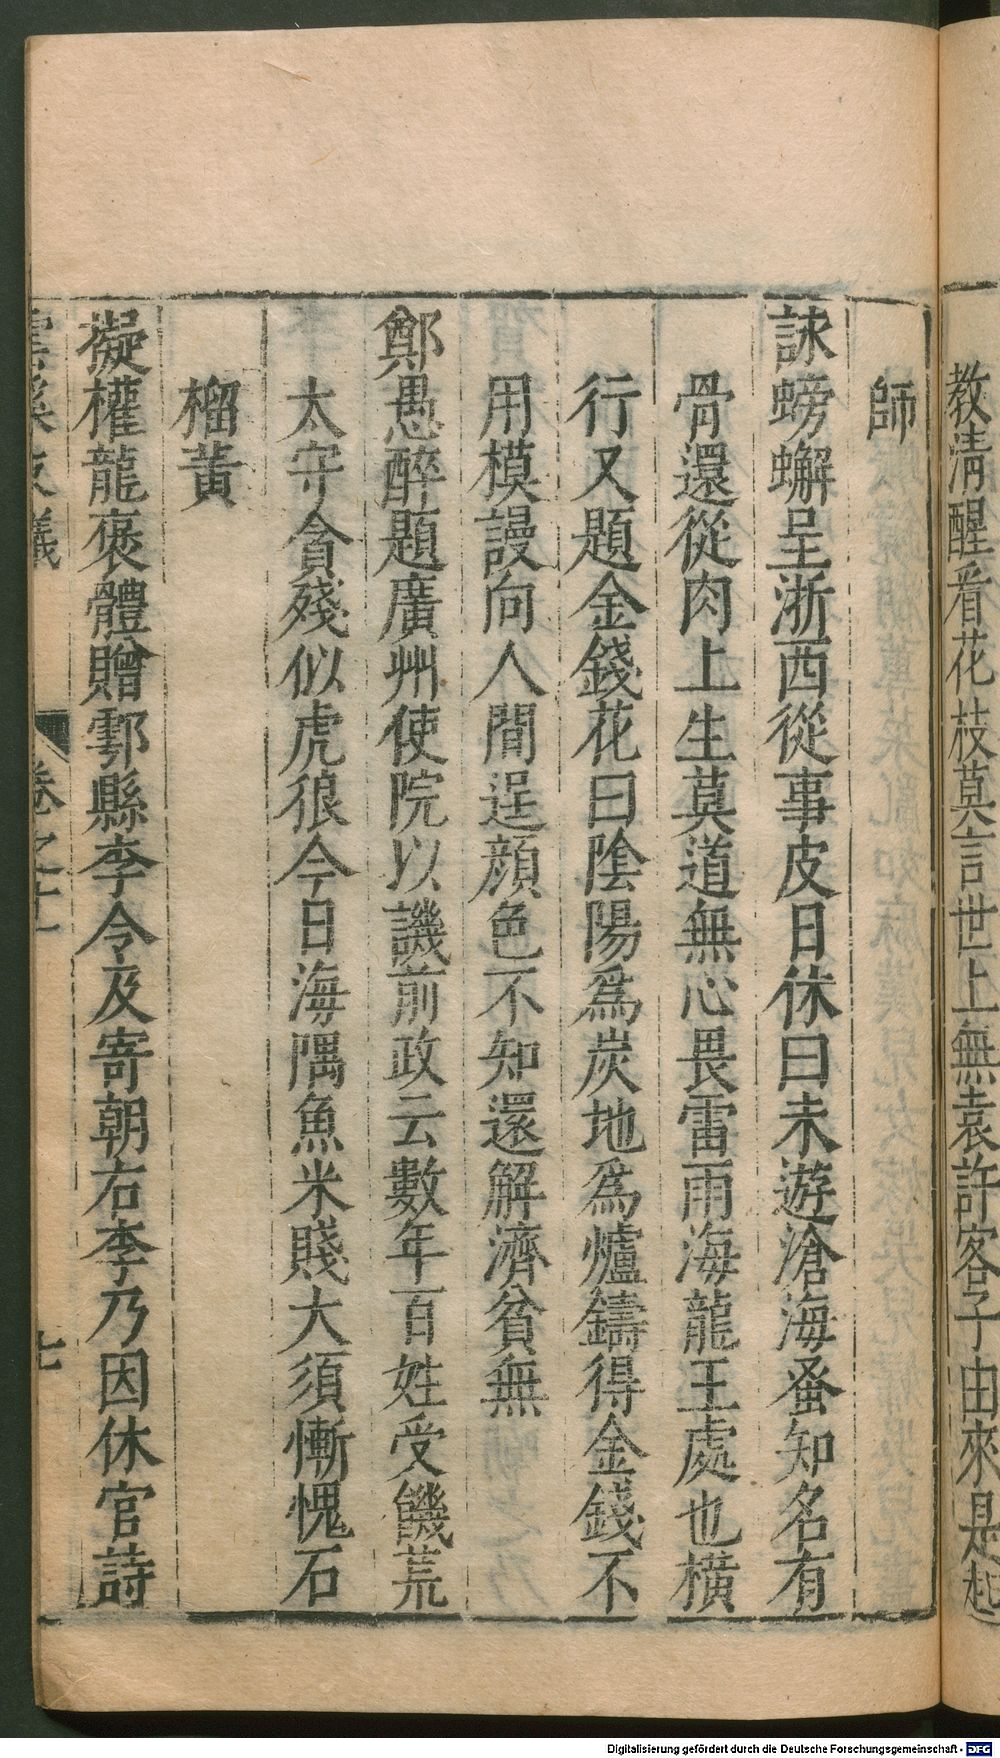 教清醒看花枝莫言世上無袁許客子由來是起
師
詠螃蠏呈浙西從事皮日休曰未遊滄海蚤知名有
骨還從肉上生莫道無心畏雷雨海龍王處也橫
行又題金錢花曰陰陽爲炭地爲爐鑄得金錢不
用模謾向人間逞顔色不知還解濟貧無
鄭愚醉題廣州使院以譏前政云數年百姓受饑荒
太守貪殘似虎狼今日海隅魚米賤大須慚愧石
榴黃
擬權龍褒體贈鄠縣李令及寄朝右李乃因休官詩
雲溪友議 卷之十一 七
Digitalisierung gefördert durch die Deutsche Forschungsgemeinschaft - DFG